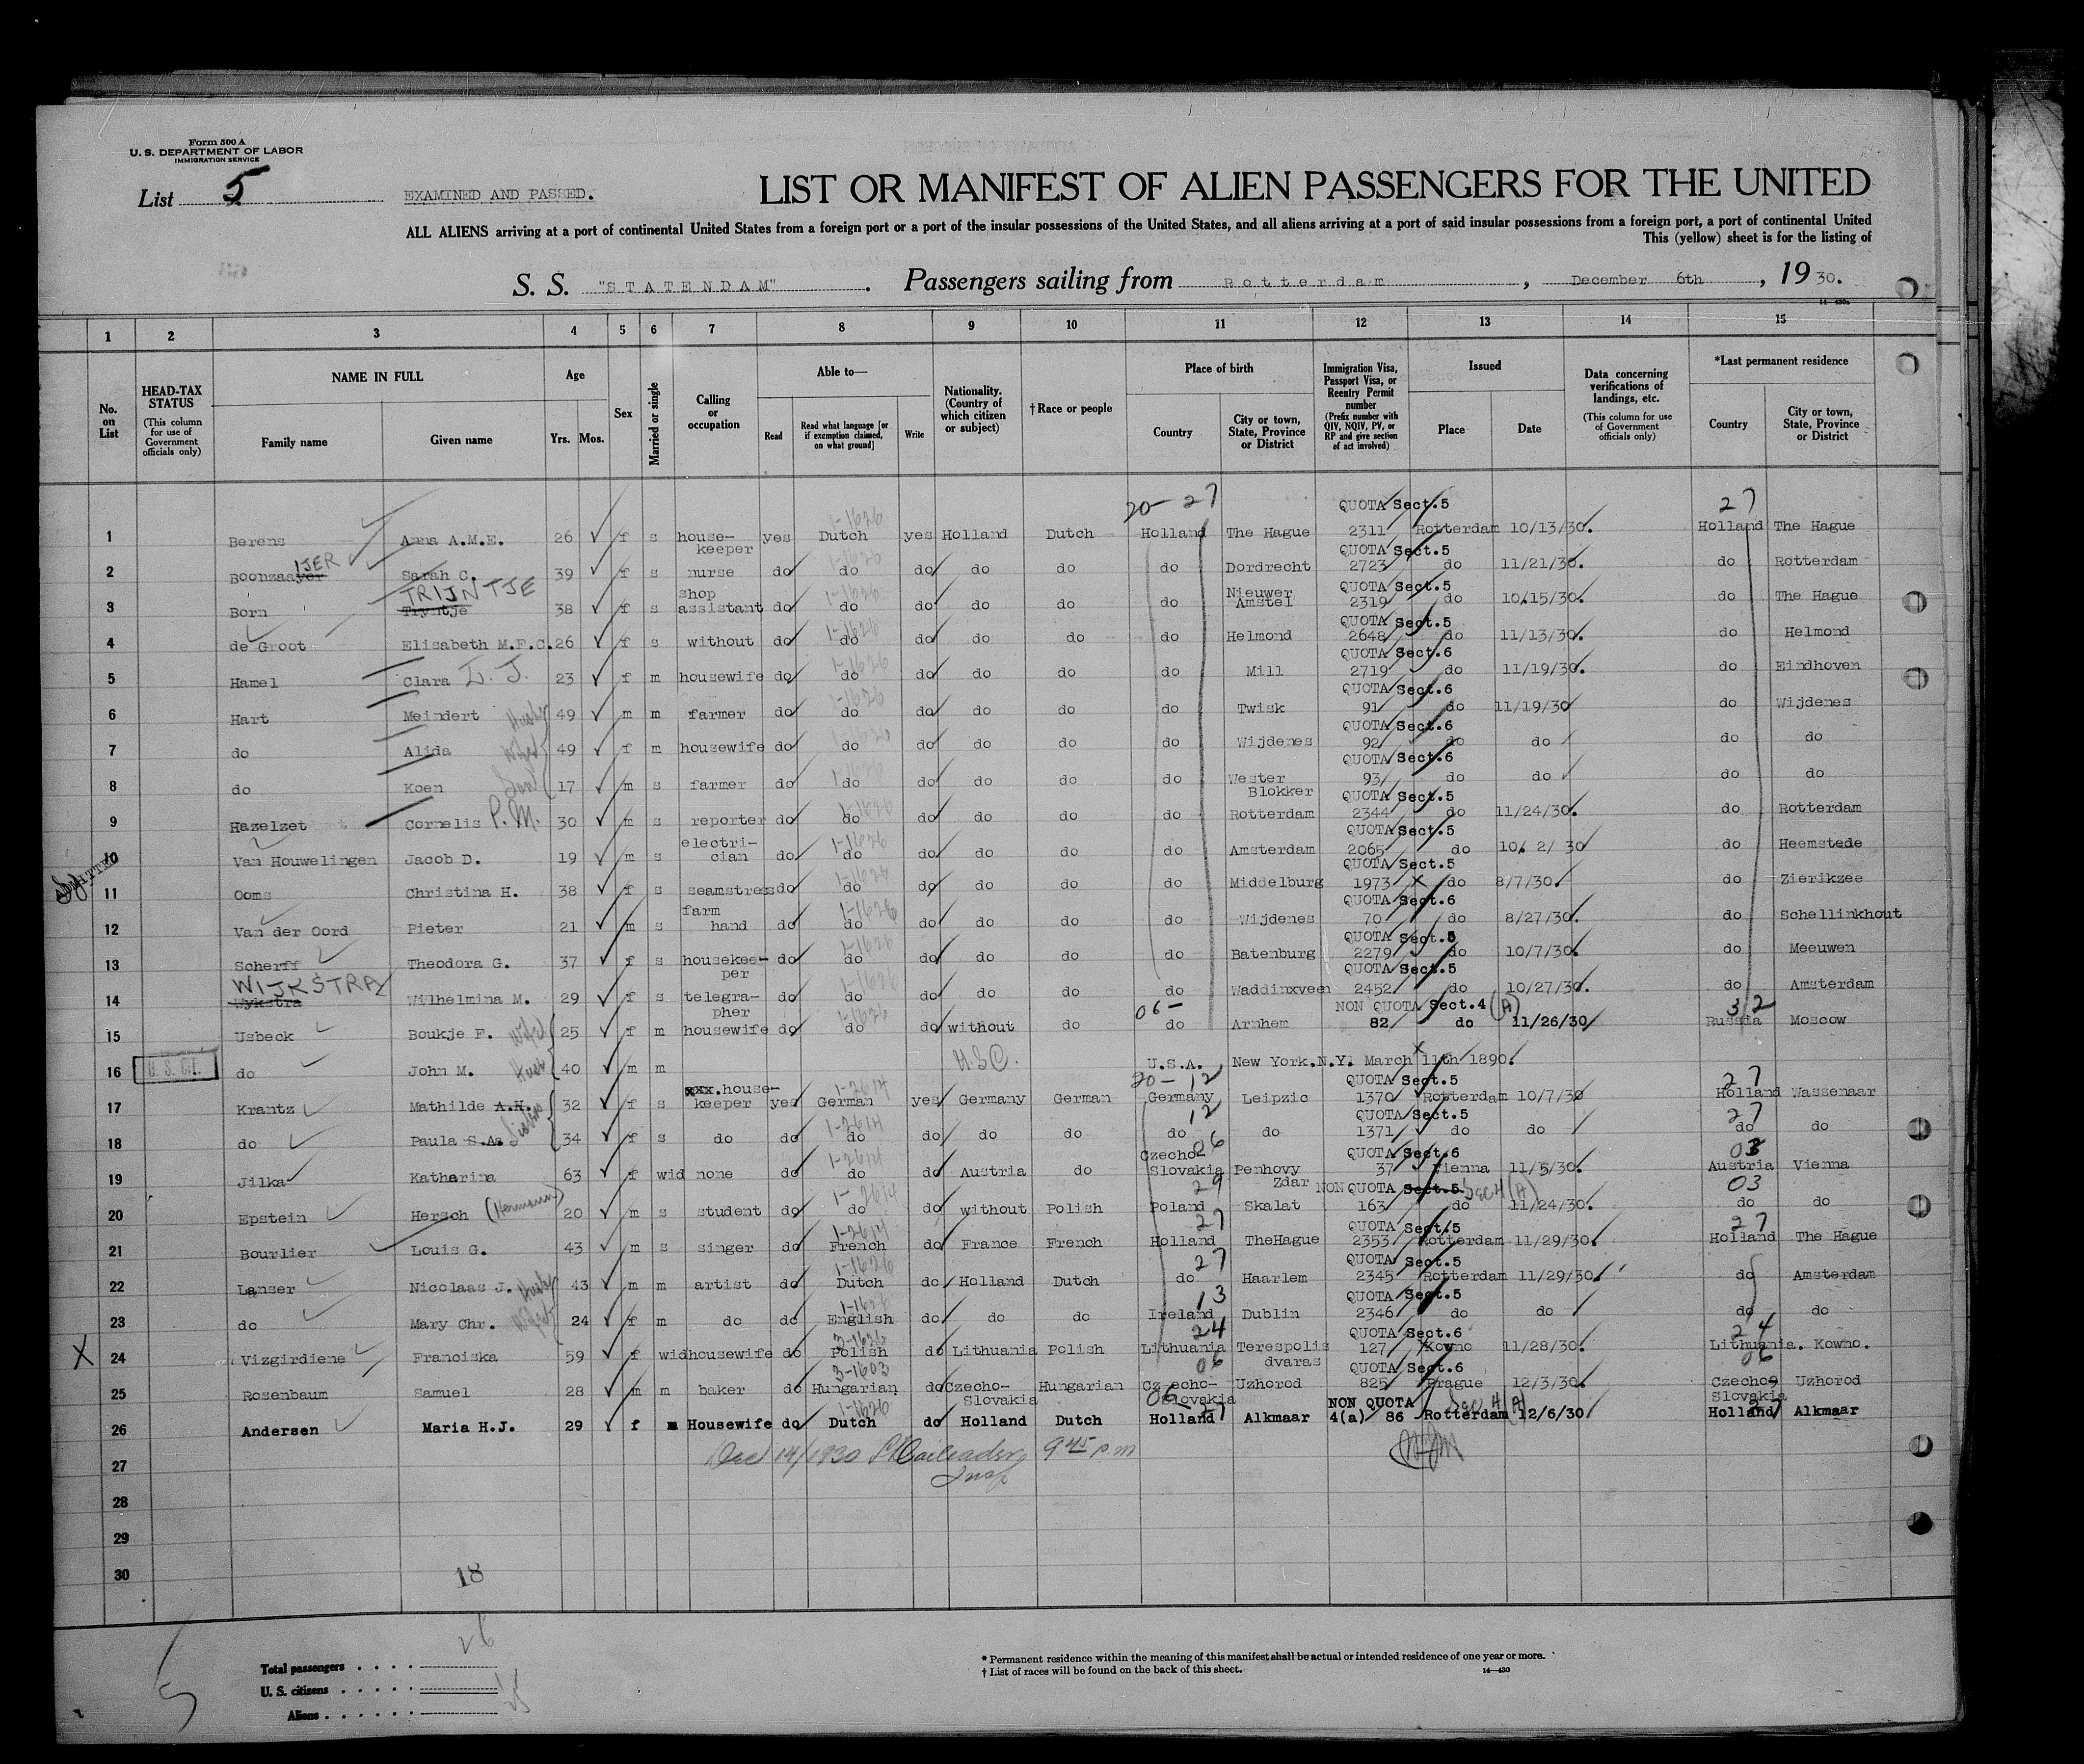 Form 500 A
U. S. DEPARTMENT OF LABOR
IMMIGRATION SERVICE
List 5
EXAMINED AND PASSED.
LIST OR MANIFEST OF ALIEN PASSENGERS FOR THE UNITED
ALL ALIENS arriving at a port of continental United States from a foreign port or a port of the insular possessions of the United States, and all aliens arriving at a port of said insular possessions from a foreign port, a port of continental United
This (yellow) sheet is for the listing of
S. S. "STATENDAM" . Passengers sailing from Rotterdam , December 6th , 1930.
14—430a
1 2 3 4 5 6 7 8 9 10 11 12 13 14 15
No. on List
HEAD-TAX STATUS (This column for use of Government officials only)
NAME IN FULL
Family name Given name
Age
Yrs. Mos.
Sex
Married or single
Calling or occupation
Able to—
Read Read what language [or if exemption claimed, on what ground] Write
Nationality. (Country of which citizen or subject)
†Race or people
Place of birth
Country City or town, State, Province or District
Immigration Visa, Passport Visa, or Reentry Permit number (Prefix number with QIV, NQIV, PV, or RP and give section of act involved)
Issued
Place Date
Data concerning verifications of landings, etc. (This column for use of Government officials only)
*Last permanent residence
Country City or town, State, Province or District
20- 27 QUOTA Sect.5 27
1 Berens Anna A.M.E. 26 f s house-keeper yes Dutch 1-1626 yes Holland Dutch Holland The Hague 2311 Rotterdam 10/13/30. Holland The Hague
QUOTA Sect.5
2 Boonzaayer IJER Sarah C. 39 f s nurse do do do do do do Dordrecht 2723 do 11/21/30. do Rotterdam
QUOTA Sect.5
3 Born Tryntje TRIJNTJE 38 f s shop assistant do do 1-1626 do do do do Nieuwer Amstel 2319 do 10/15/30. do The Hague
QUOTA Sect.5
4 de Groot Elisabeth M.F.C. 26 f s without do do 1-1626 do do do do Helmond 2648 do 11/13/30. do Helmond
QUOTA Sect.6
5 Hamel Clara 23 f m housewife do do 1-1626 do do do do Mill 2719 do 11/19/30. do Eindhoven
QUOTA Sect.6
6 Hart Meindert Husb 49 m m farmer do do 1-1626 do do do do Twisk 91 do 11/19/30 do Wijdenes
QUOTA Sect.6
7 do Alida Wife 49 f m housewife do do 1-1626 do do do do Wijdenes 92 do do do do
QUOTA Sect.6
8 do Koen Son 17 m s farmer do do 1-1626 do do do do Wester Blokker 93 do do do do
QUOTA Sect.5
9 Hazelzet Cornelis P.M. 30 m s reporter do do 1-1626 do do do do Rotterdam 2344 do 11/24/30. do Rotterdam
QUOTA Sect.5
10 Van Houwelingen Jacob D. 19 m s electri-cian do do 1-1626 do do do do Amsterdam 2065 do 10/ 2/ 30 do Heemstede
ADMITTED
QUOTA Sect.5
11 Ooms Christina H. 38 f s seamstress do do 1-1626 do do do do Middelburg 1973 do 8/7/30. do Zierikzee
QUOTA Sect.6
12 Van der Oord Pieter 21 m s farm hand do do 1-1626 do do do do Wijdenes 70 do 8/27/30. do Schellinkhout
QUOTA Sect.5
13 Scherff Theodora G. 37 f s housekee-per do do 1-1626 do do do do Batenburg 2279 do 10/7/30. do Meeuwen
QUOTA Sect.5
14 Wykstra WIJKSTRA Wilhelmina M. 29 f s telegra-pher do do 1-1626 do do do do Waddinxveen 2452 do 10/27/30. do Amsterdam
06- NON QUOTA Sect.4 (A) 32
15 Usbeck Boukje F. Wife 25 f m housewife do do 1-1626 do without do do Arnhem 82 do 11/26/30 Russia Moscow
16 U. S. CI. do John M. Husb 40 m m USC. U.S.A. New York.N.Y. March 11th 1890.
20- 12 QUOTA Sect.5 27
17 Krantz Mathilde A.H. 32 f s xxx.house-keeper yes German 1-2614 yes Germany German Germany Leipzic 1370 Rotterdam 10/7/30 Holland Wassenaar
12 QUOTA Sect.5 27
18 do Paula S.A. Sisters 34 f s do do do 1-2614 do do do do do 1371 do do do do
06 QUOTA Sect.6 03
19 Jilka Katharina 63 f wid none do do 1-2614 do Austria do Czecho-Slovakia Penhovy Zdar 37 Vienna 11/5/30. Austria Vienna
29 NON QUOTA Sect.5 Sec 4 (A) 03
20 Epstein Hersch (Hermann) 20 m s student do do 1-2614 do without Polish Poland Skalat 163 do 11/24/30. do do
27 QUOTA Sect.5 27
21 Bourlier Louis G. 43 m s singer do French 1-2614 do France French Holland TheHague 2353 Rotterdam 11/29/30. Holland The Hague
27 QUOTA Sect.5
22 Lanser Nicolaas J. Husb 43 m m artist do Dutch 1-1626 do Holland Dutch do Haarlem 2345 Rotterdam 11/29/30. do Amsterdam
13 QUOTA Sect.5
23 do Mary Chr. Wife 24 f m do do English 1-1626 do do do Ireland Dublin 2346 do do do do
24 QUOTA Sect.6 24
X 24 Vizgirdiene Franciska 59 f wid housewife do Polish 3-1626 do Lithuania Polish Lithuania Terespolis dvaras 127 Kowno 11/28/30. Lithuania. Kowno.
06 QUOTA Sect.6 06
25 Rosenbaum Samuel 28 m m baker do Hungarian 3-1603 do Czecho-Slovakia Hungarian Czecho-Slovakia Uzhorod 825 Prague 12/3/30. Czecho-Slovakia Uzhorod
06- 27 NON QUOTA Sec 4 (A) 27
26 Andersen Maria H.J. 29 f m Housewife do Dutch 1-1626 do Holland Dutch Holland Alkmaar 4(a) 86 Rotterdam 12/6/30 Holland Alkmaar
27 Dec 14/1930 9 45 p.m
Insp
28
29
30
18
26
Total passengers . . . .
U. S. citizens . . . . .
Aliens . . . . . . 25
5
* Permanent residence within the meaning of this manifest shall be actual or intended residence of one year or more.
† List of races will be found on the back of this sheet. 14—430